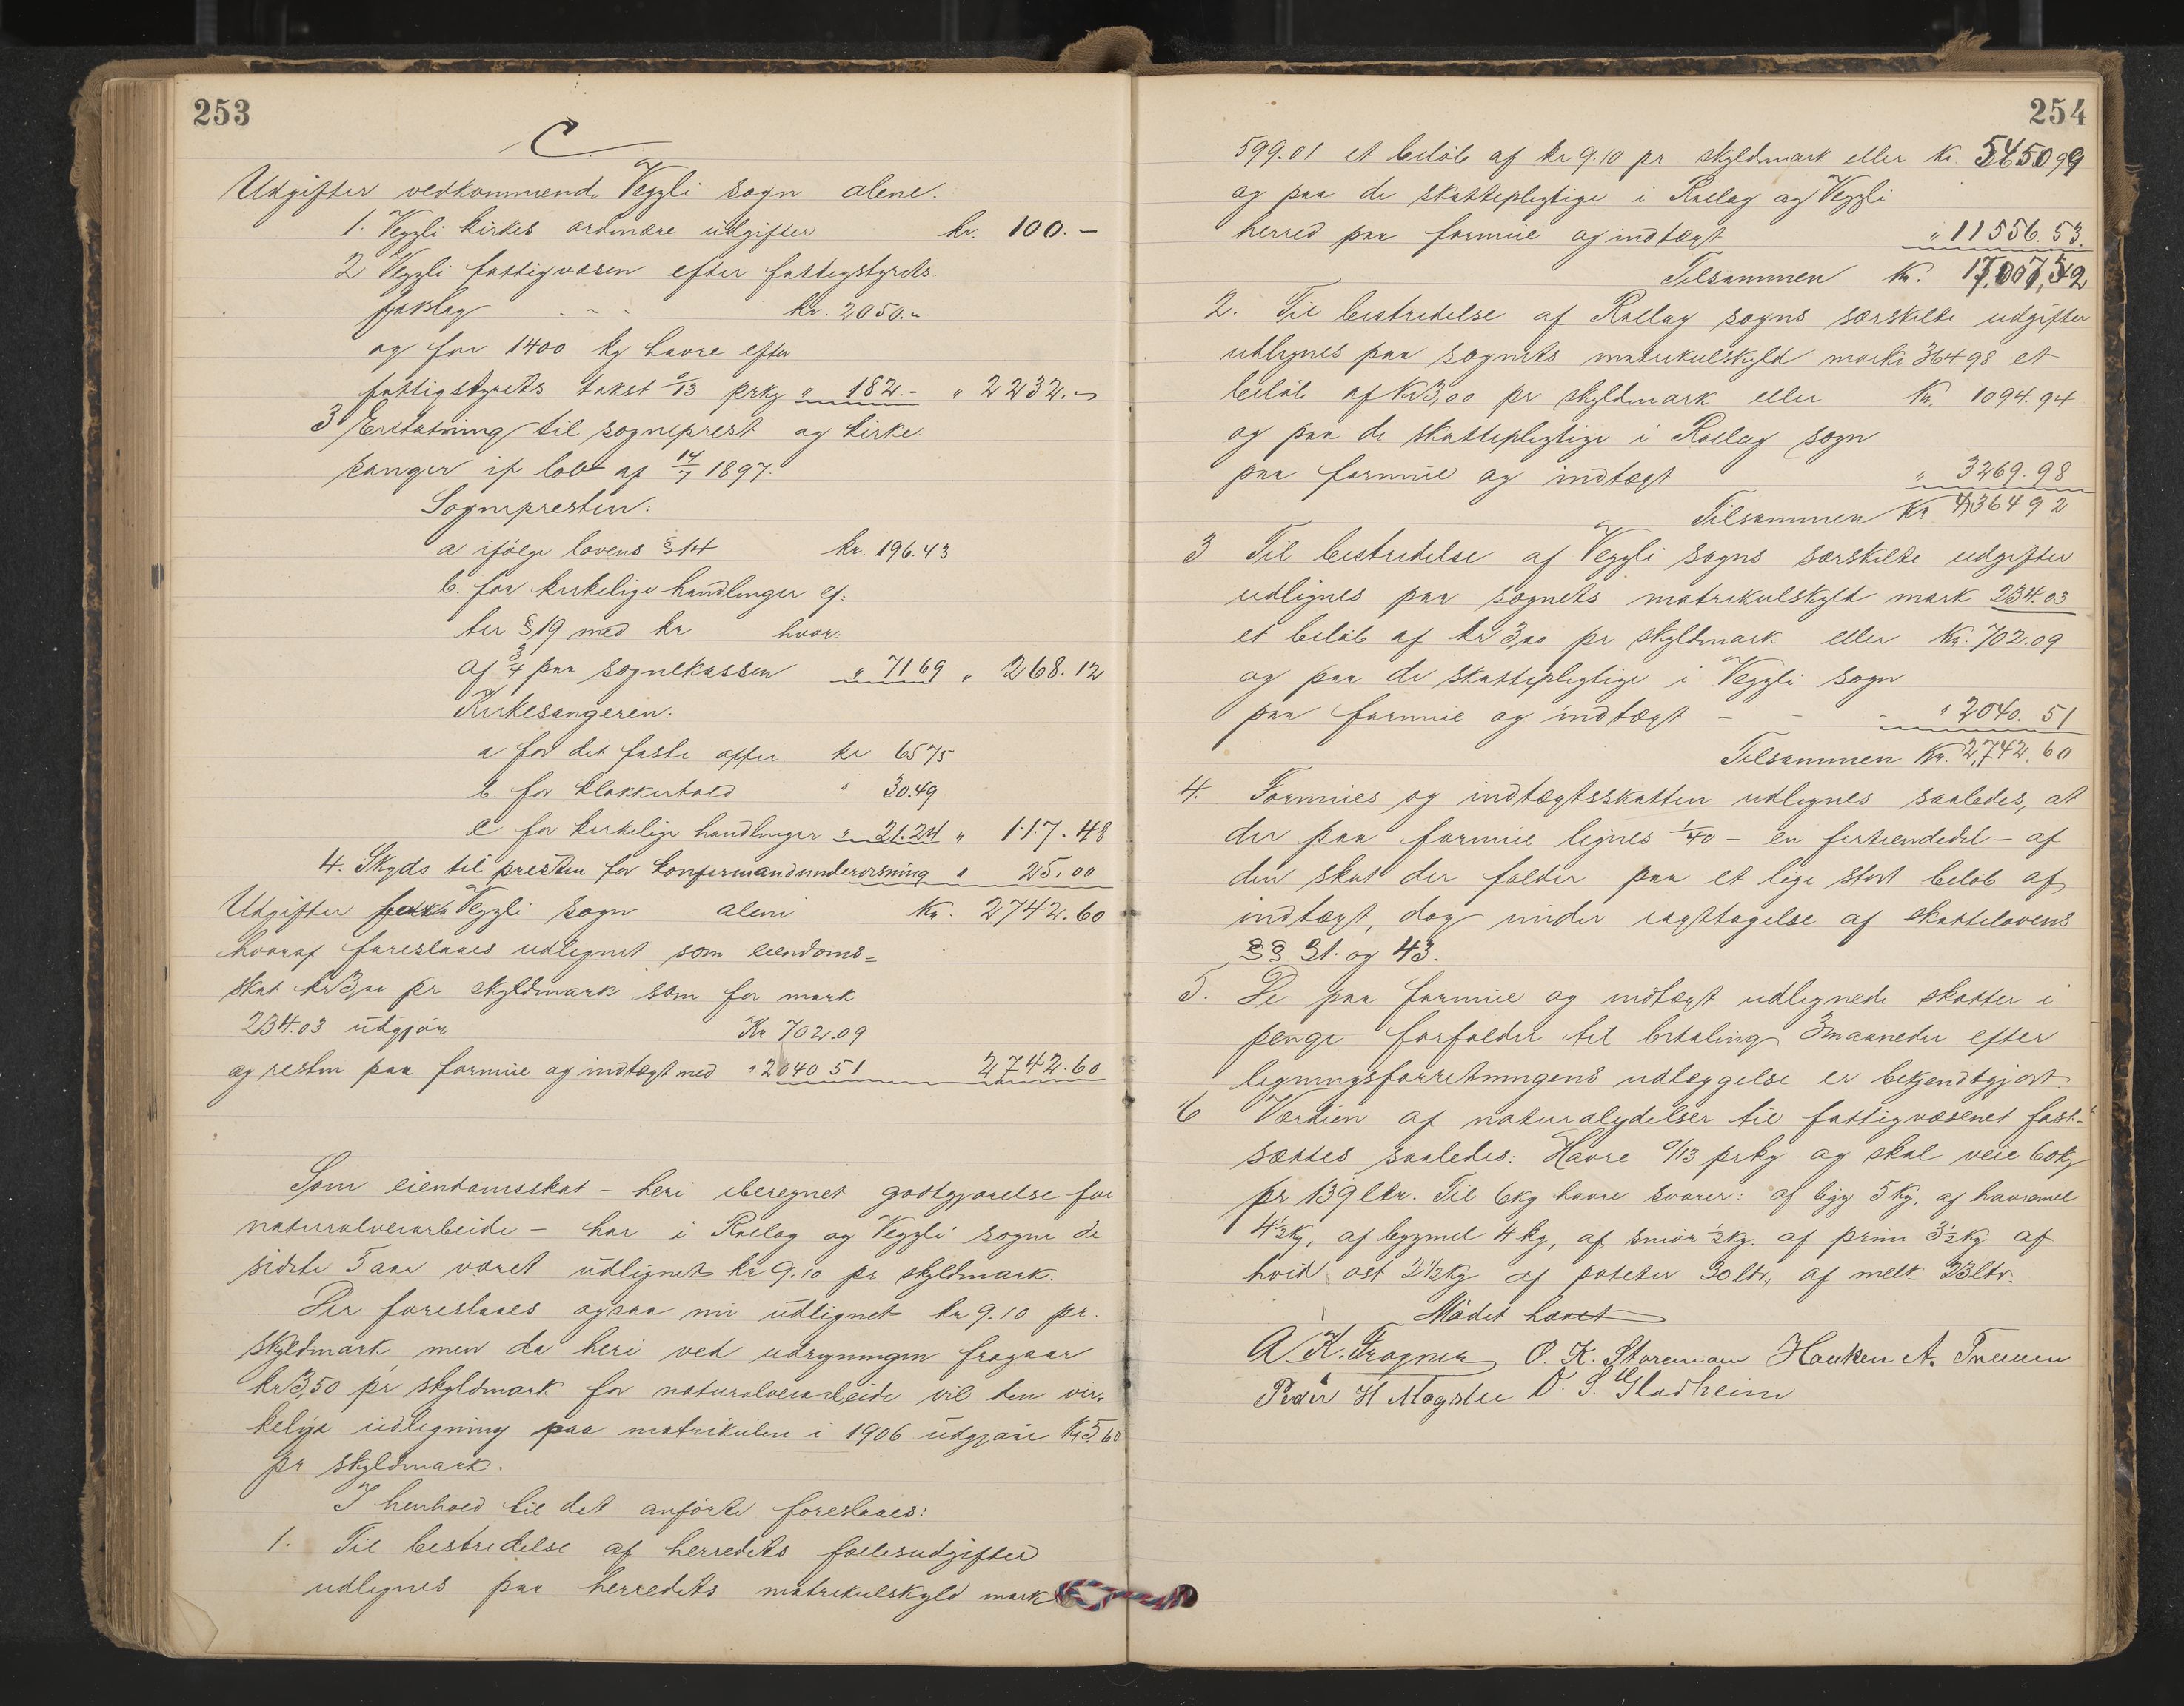 253
C
Udgifter vedkommende Veggli sogn alene.
1. Veggli kirkes ordinære udgifter kr. 100.-
2 Veggli fattigvæsen efter fattigstyrets
forslag - - - kr. 2050.-
og for 1400 kg havre efter
fattigstyrets takst 0/13 pr kg " 182.- " 2232.-
3 Erstatning til sogneprest og kirke
sanger if lov af 14/7 1897.
Sognepresten:
a ifölge lovens § 14 kr. 196.43
b. for kirkelige handlinger ef:
ter § 19 med kr hvor:
af 3/4 paa sognekassen " 71 69 " 268.12
Kirkesangeren:
a for det faste offer kr 65 75
b. for klokkerhold " 30.49
c for kirkelige handlinger " 21.24 " 117.48
4. Skyds til presten for konfirmandundervisning " 25,00
Udgifter Veggli sogn alene Kr. 2742.60
hvoraf foreslaaes udlignet som eiendoms=
skat kr 3,00 pr skyldmark som for mark
234.03 udgjör Kr 702.09
og resten paa formue og indtægt med " 2040 51 2742.60
Som eiendomsskat - heri iberegnet godtgjørelse for
naturalveiarbeide - har i Rollag og Veggli sogne de
sidste 5 aar været udlignet kr 9.10 pr skyldmark.
Der foreslaaes ogsaa nu udlignet kr 9.10 pr.
skyldmark men da heri ved udregningen fragaar
kr 3,50 pr skyldmark for naturalveiarbeide vil den vir-
kelige udligning paa matrikulen i 1906 udgjøre Kr 5.60
pr skyldmark.
I henhold til det anförte foreslaaes:
1. Til bestridelse af herredets fællesudgifter
udlignes paa herredets matrikulskyld mark
254
599.01 et belöb af kr 9.10 pr skyldmark eller Kr 5450 99
og paa de skattepligtige i Rollag og Veggli
herred paa formue og indtægt " 11556.53.
Tilsammen Kr. 17,007,52
2. Til bestridelse af Rollag sogns særskilte udgifter
udlignes paa sognets matrikulskyld mark 364 98 et
belöb af Kr 3,00 pr skyldmark eller Kr. 1094.94
og paa de skattepligtige i Rollag sogn
paa formue og indtægt " 3269.98
Tilsammen Kr 4364 92
3 Til bestridelse af Veggli sogns særskilte udgifter
udlignes paa sognets matrikulskyld mark 234.03
et belöb af kr 3,00 pr skyldmark eller Kr. 702.09
og paa de skattepligtige i Veggli sogn
paa formue og indtægt - - - " 2040.51
Tilsammen Kr. 2,742.60
4. Formues og indtægtsskatten udlignes saaledes, at
der paa formue lignes 1/40 - en fertiendedel - af
den skat der falder paa et lige stort belöb af
indtægt, dog under iagttagelse af skattelovens
§§ 31. og 43.
5. De paa formue og indtægt udlignede skatter i
penge forfalder til betaling 3 maaneder efter
ligningsforretningens udlæggelse er bekjendtgjort.
6 Værdien af naturalydelser til fattigvæsenet fast-
sættes saaledes: Havre 0/13 pr kg og skal veie 60 kg
pr 139 ltr. Til 6 kg havre svarer: af byg 5 kg, af havremel
4½ kg, af bygmel 4 kg, af smör ½ kg. af prim 3½ kg af
hvid ost 2½ kg af poteter 30 ltr, af melk 23 ltr.
Mödet hævet
A. K. Fragner O. K. Storemoen Haaken A. Traaen
Peder H Mogster O. S. Gladheim